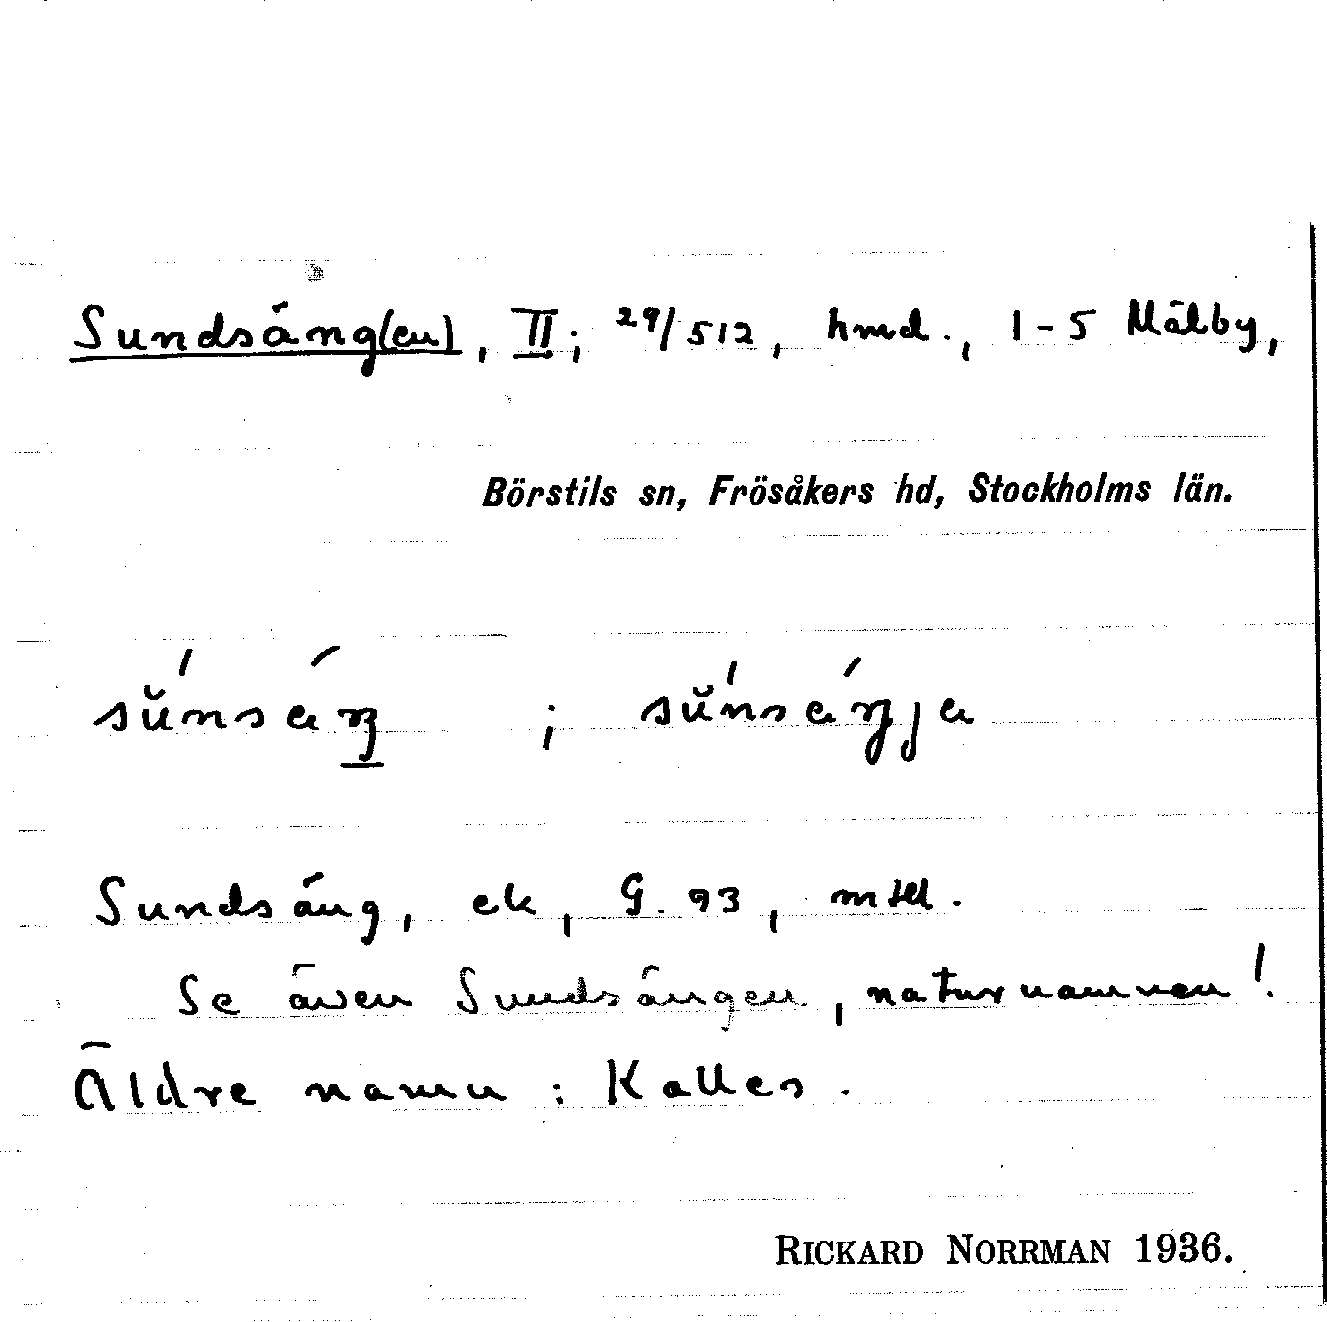 Sundsäng(en), II; 29/512, hmd., 1-5 Mälby,
Börstils sn, Frösåkers hd, Stockholms län.
sŭ́nsáŋ ; sŭ́nsáŋja
Sundsäng, ek, G. 93,
Se även Sundsängen, naturnamnen!
Äldre namn: Kalles.
RICKARD NORRMAN 1936.